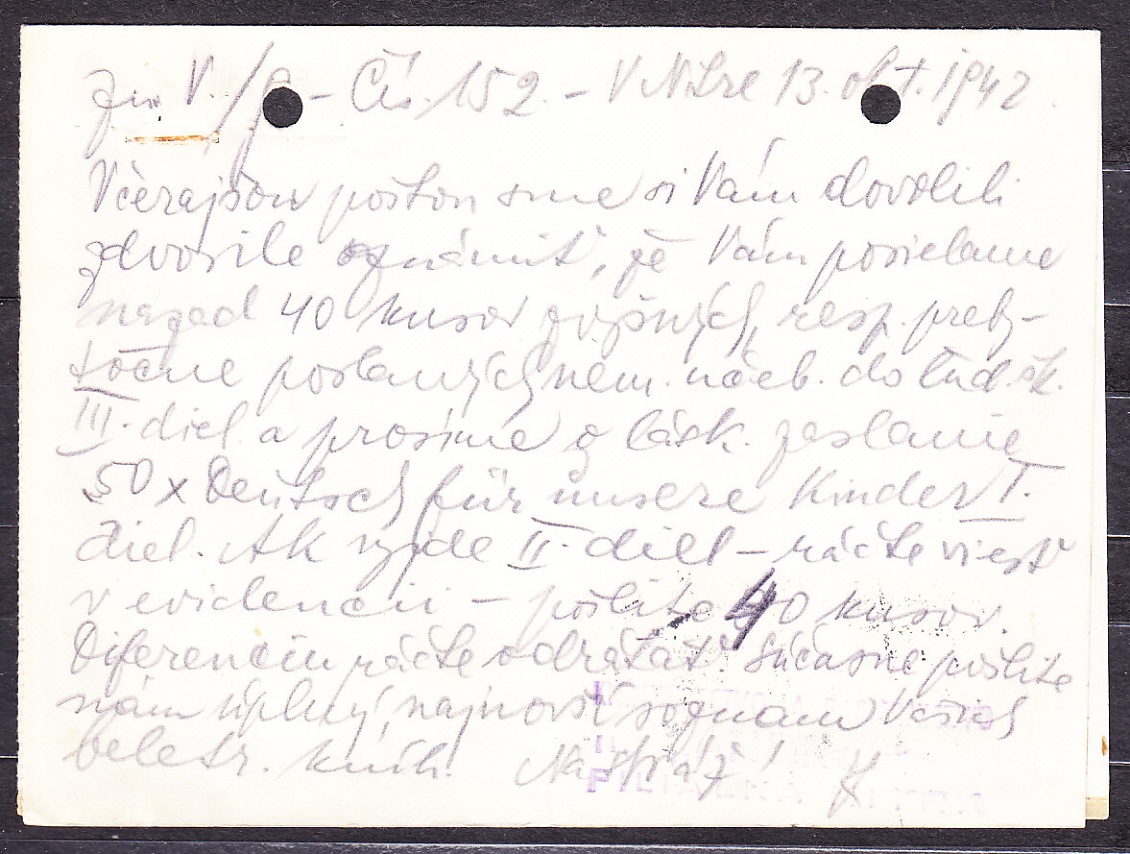 V./ - Čís. 152. - V Nitre 13. okt. 1942.
Včerajšou poštou sme si Vám dovolili
zdvorile oznámiť, že Vám posielame
nazad 40 kusov zvyšných, resp. preby-
točne poslaných nem. učeb. do ľud. šk.
III. diel a prosíme o lásk. zaslanie
50 x Deutsch für unsere Kinder I.
diel. Ak vyjde II. diel - ráčte viesť
v evidencii - pošlite 40 kusov.
Diferenciu ráčte odrátať. Súčasne pošlite
nám úplný, najnovší soznam Vašich
beletr. kníh. Na stráž!
FILIÁLKA NITRA